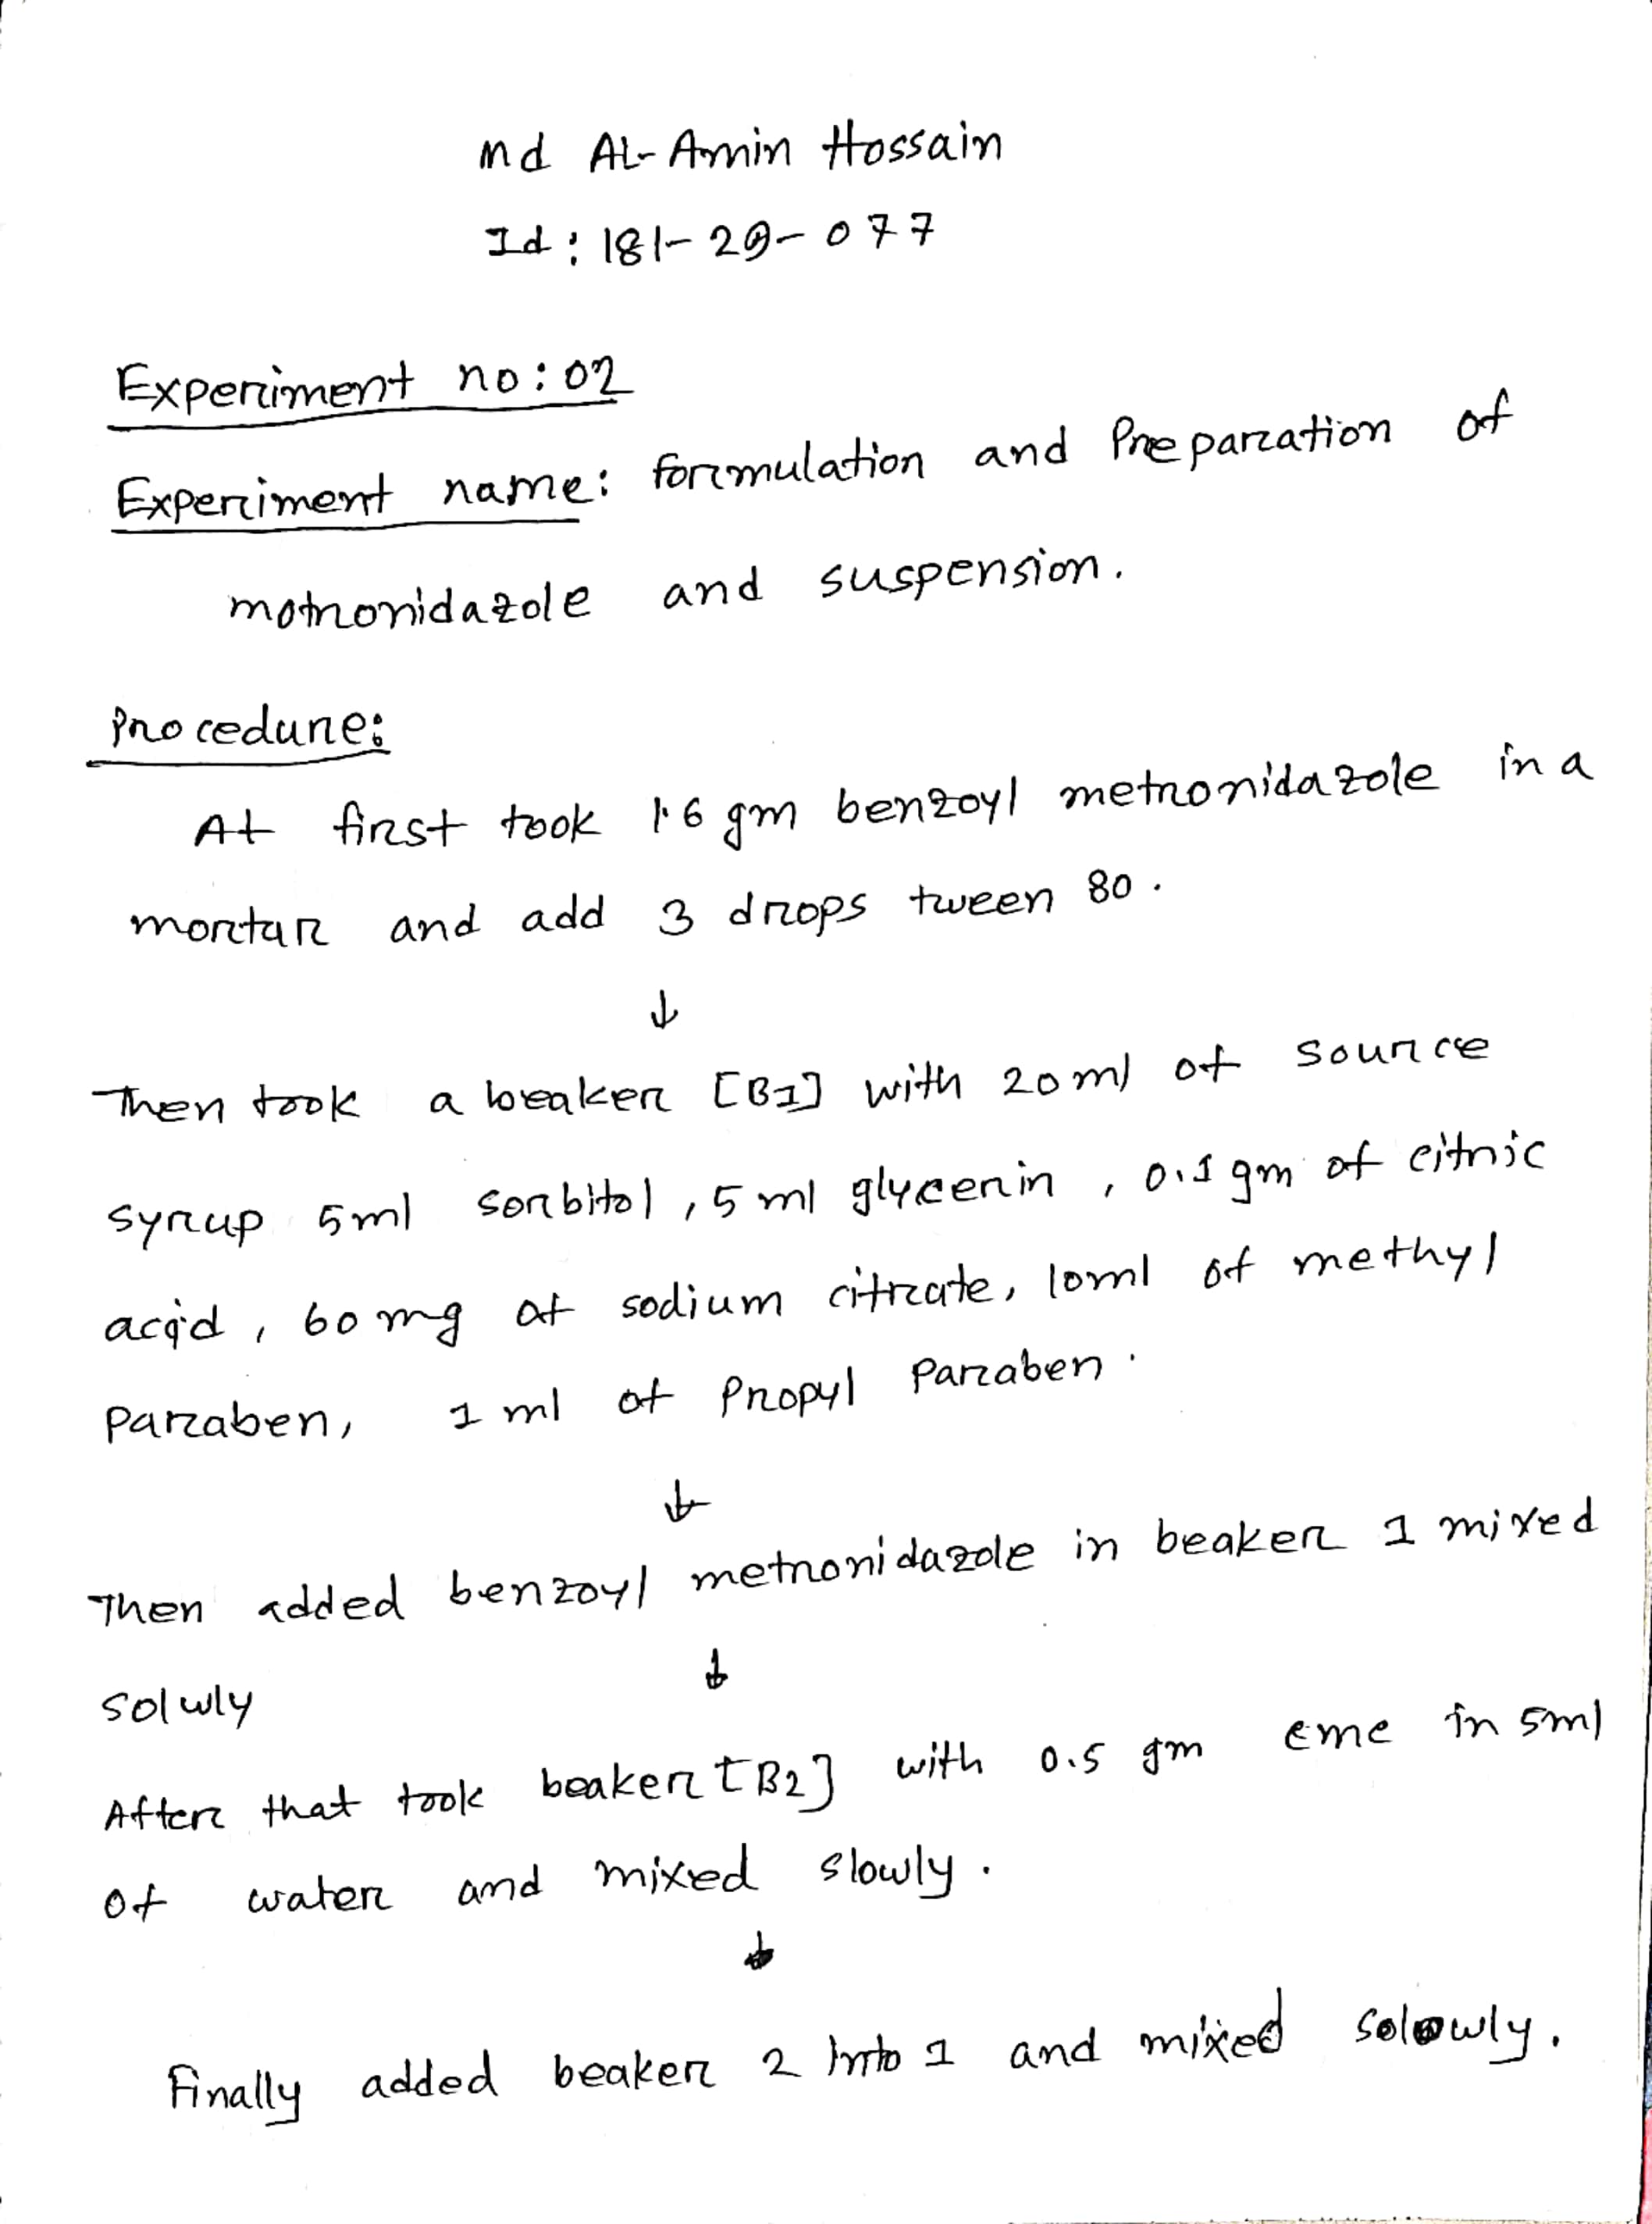 Md AL-Amin Hossain
Id: 181-29-077
Experiment no: 02
Experiment name: formulation and Preparation of
motronidazole and suspension.
Procedure:
At first took 1.6 gm benzoyl metronidazole in a
mortar and add 3 drops tween 80.
↓
Then took a beaker [B1] with 20ml of source
syrup 5ml sorbitol, 5 ml glycerin, 0.1 gm of citric
acid, 60 mg of sodium citrate, 10ml of methyl
Paraben, 1 ml of Propyl Paraben.
↓
Then added benzoyl metronidazole in beaker 1 mixed
↓
solwly
After that took beaker [B2] with 0.5 gm cmc in 5ml
of water and mixed slowly.
↓
Finally added beaker 2 into 1 and mixed solowly.